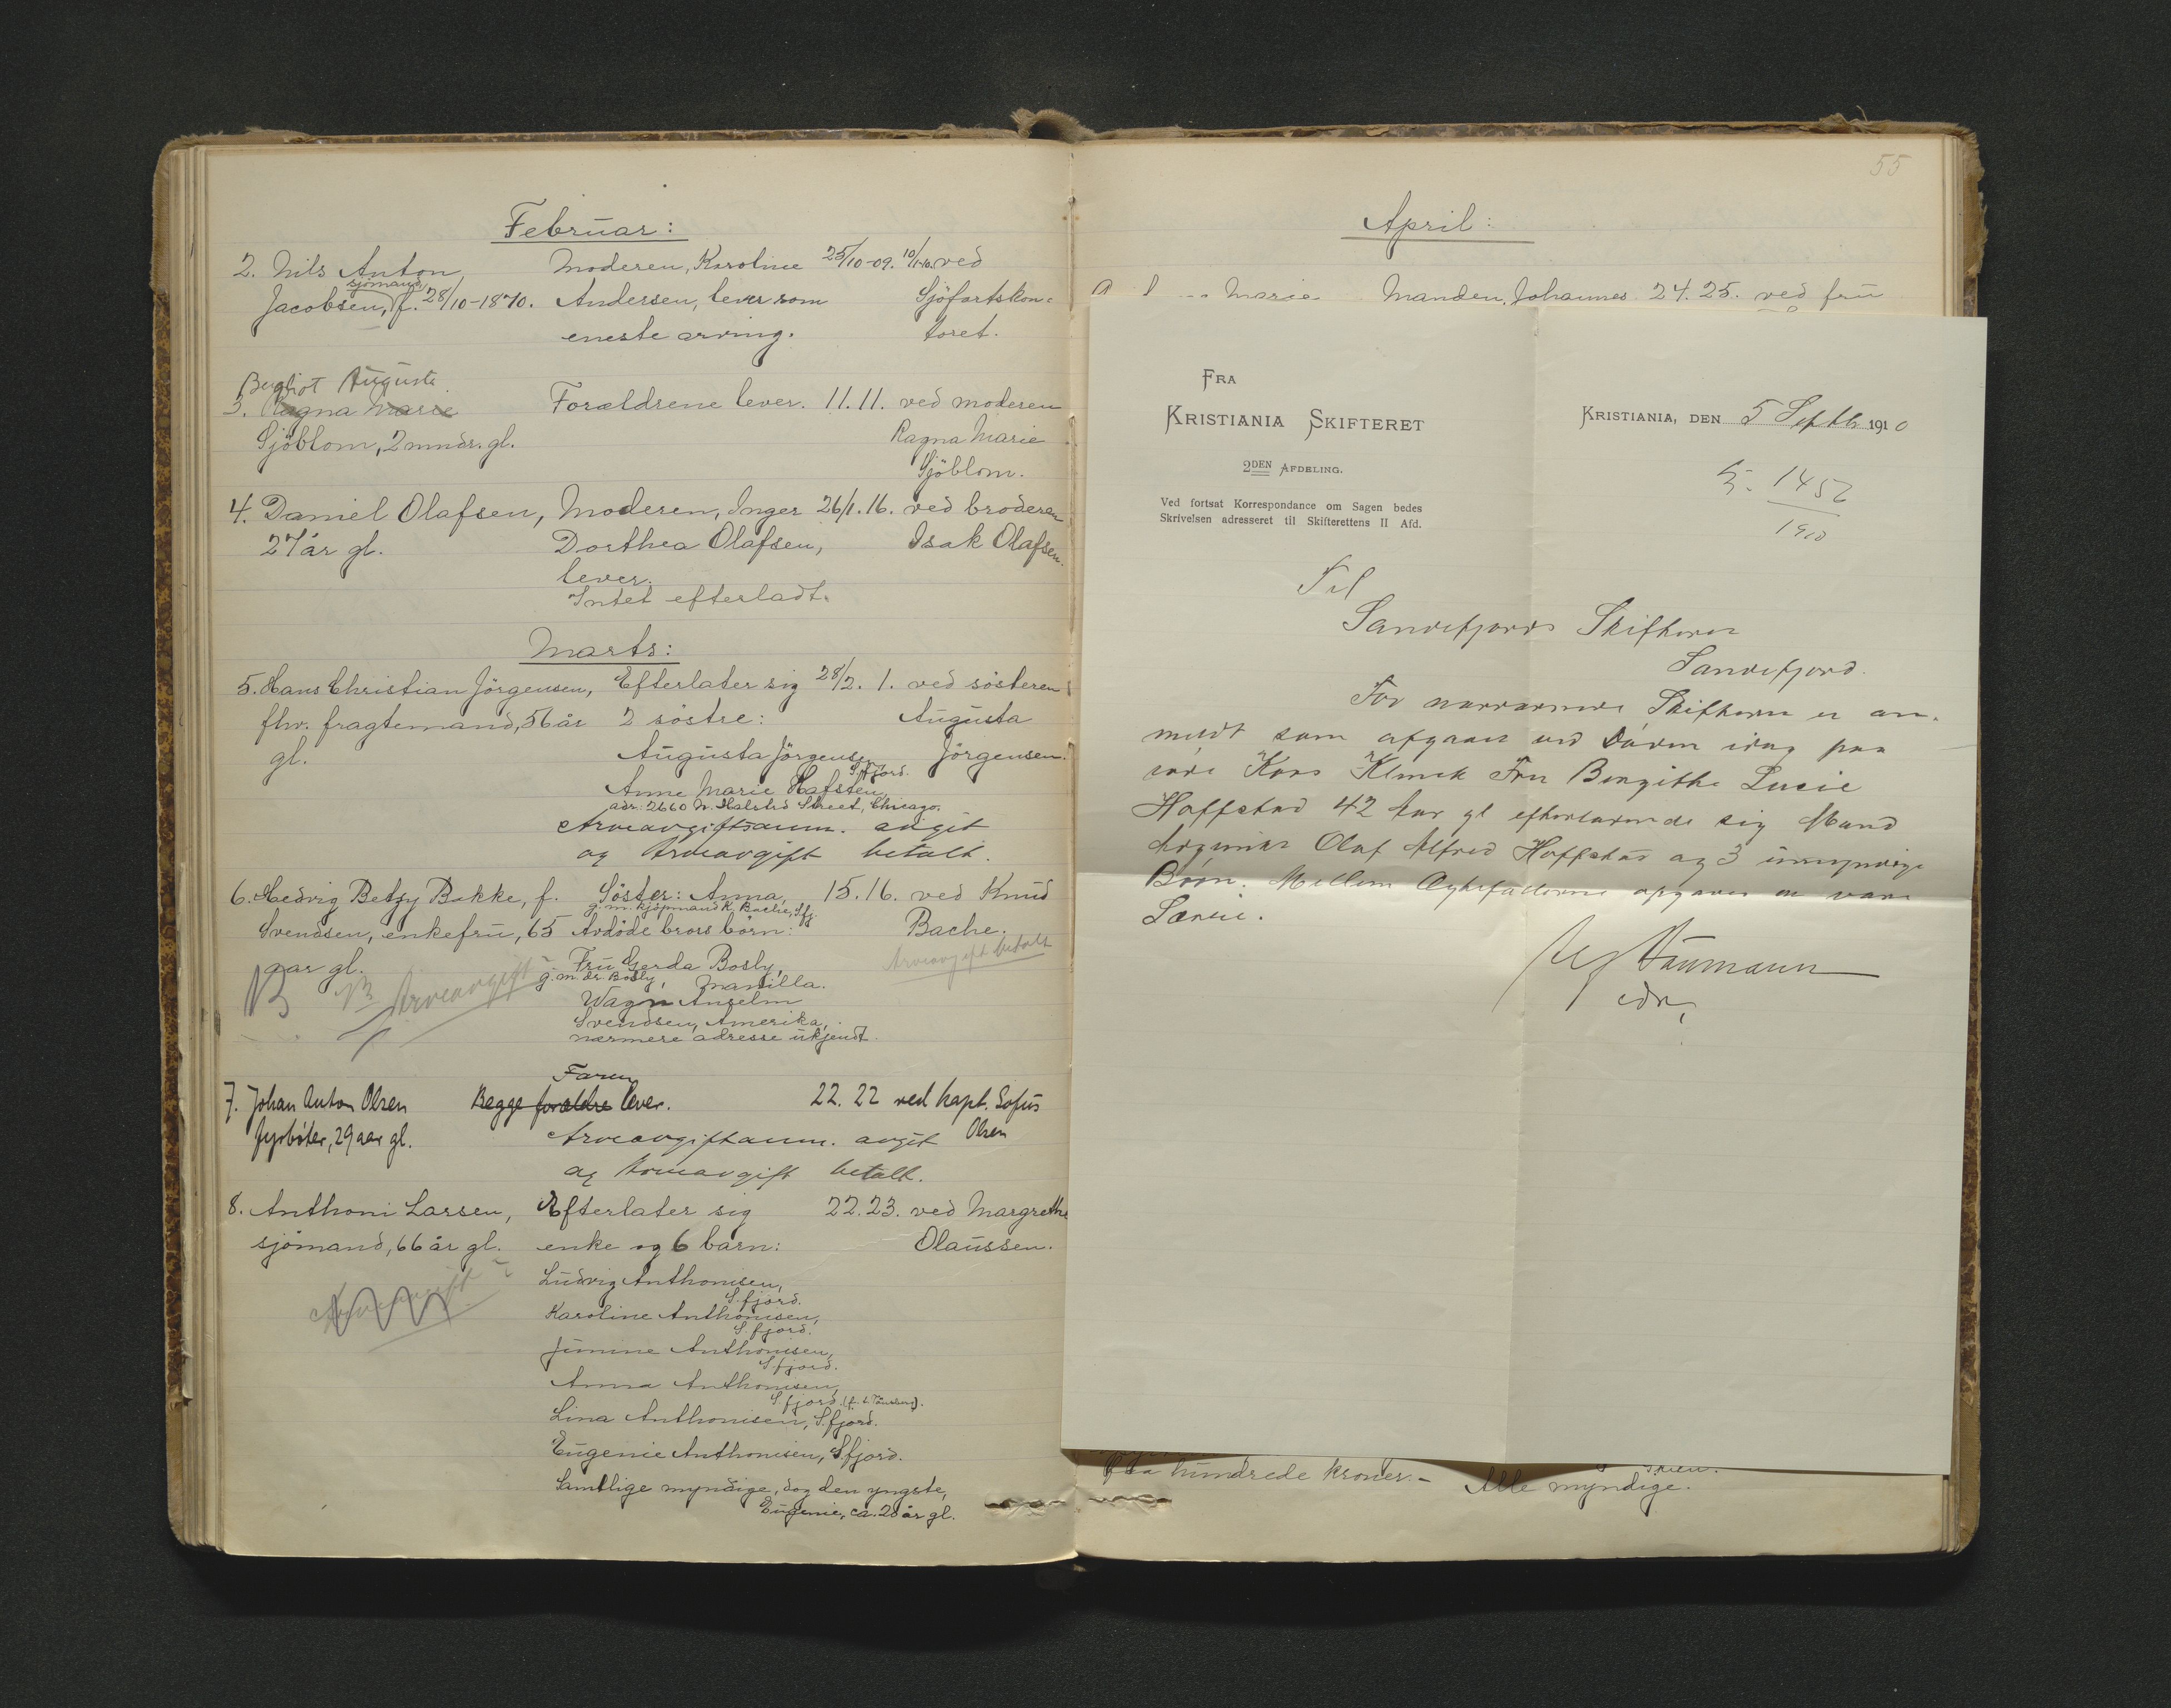 Februar:
2. Nils Anton Moderen, Karoline 25/10-09. 10/1-10. ved
sjømand,
Jacobsen, f. 28/10-1870. Andersen, lever som Sjöfartskon-
eneste arving. toret.
Bergliot Augusta
3. Ragna Marie Forældrene lever. 11. 11. ved moderen
Sjöblom, 2 mndr. gl. Ragna Marie
Sjöblom.
4. Daniel Olafsen, Moderen, Inger 26/1. 16. ved broderen
27 år gl. Dorthea Olafsen, Isak Olafsen.
lever.
Intet efterladt.
Marts:
5. Hans Christian Jörgensen, Efterlater sig 28/2. 1. ved sösteren
fhv. fragtemand, 56 år 2 söstre: Augusta
gl. Augusta Jörgensen Jörgensen.
S.fjord.
Anne Marie Hafsten,
adr: 2660 N. Halsted Street, Chicago.
Arveavgiftsanm. avgit
og Arveavgift betalt.
6. Hedvig Betzy Bakke, f. Söster: Anna, 15. 16. ved Knud
g. m. kjöpmand K. Bache, Sfj.
Svendsen, enkefru, 65 Avdöde brors börn: Bache.
aar gl. Fru Gerda Bosly, Arveavgift betalt
g. m. dr. Bosly, Manilla.
Arveavgift
Wagn Anselm
Svendsen, Amerika,
nærmere adresse ukjendt.
Faren
7. Johan Anton Olsen Begge forældre lever. 22. 22 ved kapt. Sofus
Fyrböter, 29 aar gl. Arveavgiftsanm. avgit Olsen
og Arveavgift betalt.
8. Anthoni Larsen, Efterlater sig 22. 23. ved Margrethe
sjömand, 66 år gl. enke og 6 barn: Olaussen.
Arveavgift
Ludvig Anthonisen,
S.fjord.
Karoline Anthonisen,
S.fjord.
Jimine Anthonisen,
S.fjord.
Anna Anthonisen,
S.fjord
Lina Anthonisen, S.fjord.
Eugenie Anthonisen, S.fjord.
Samtlige myndige, dog den yngste,
Eugenie, ca. 20 år gl.
55
April:
Marie Manden, Johannes 24. 25. ved fru
FRA
KRISTIANIA SKIFTERET
2DEN AFDELING.
Ved fortsat Korrespondance om Sagen bedes
Skrivelsen adresseret til Skifterettens II Afd.
KRISTIANIA, DEN 5 Septbr 1910
1452
1910
Til
Sandefjords Skifteret
Sandefjord.
For nærværende Skifteret er an-
meldt som afgaaet ved Døden idag paa
Klinik Fru Bergithe Lucie
Hoffstad 42 Aar gl efterladende sig Mand
Olaf Alfred Hoffstad og 3 umyndige
Børn. Mellem Ægtefællerne opgaves at være
Særeie.
Naumann
cdn,
hundrede kroner.- Alle myndige.